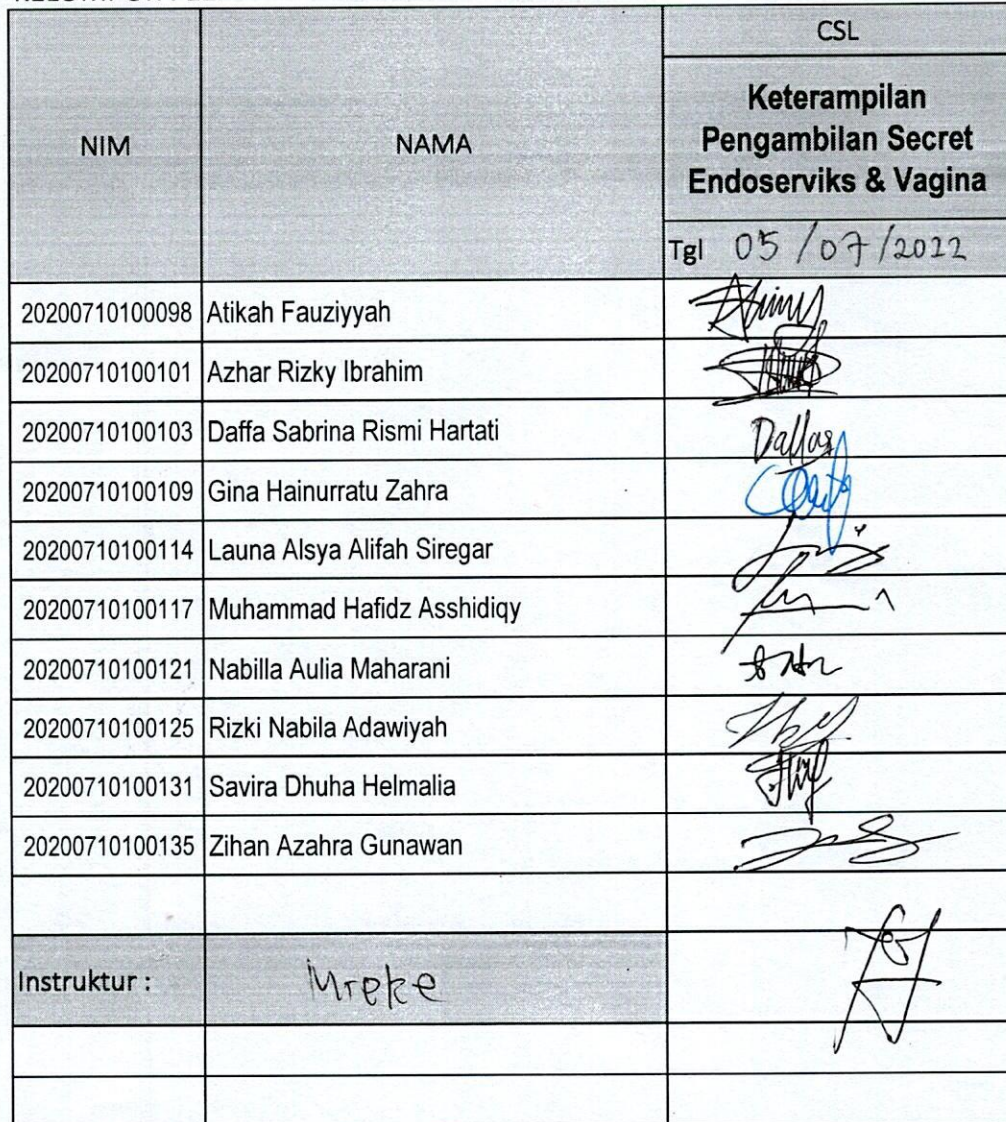 CSL
NIM
NAMA
Keterampilan
Pengambilan Secret
Endoserviks & Vagina
Tgl 05/07/2022
20200710100098 Atikah Fauziyyah
20200710100101 Azhar Rizky Ibrahim
20200710100103 Daffa Sabrina Rismi Hartati
20200710100109 Gina Hainurratu Zahra
20200710100114 Launa Alsya Alifah Siregar
20200710100117 Muhammad Hafidz Asshidiqy
20200710100121 Nabilla Aulia Maharani
20200710100125 Rizki Nabila Adawiyah
20200710100131 Savira Dhuha Helmalia
20200710100135 Zihan Azahra Gunawan
Instruktur :